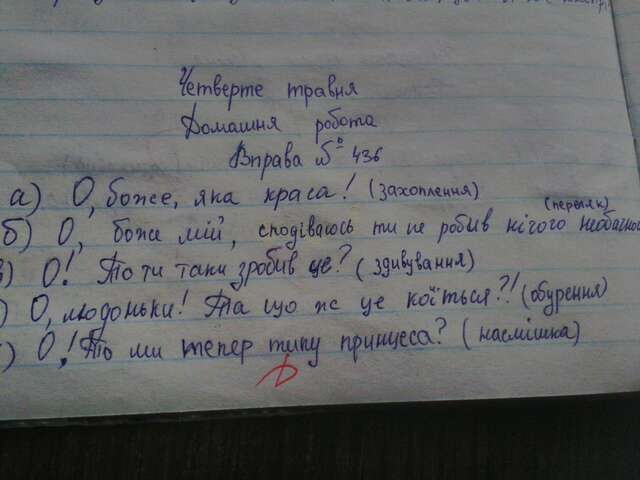 Четверте травня
Домашня робота
Вправа № 436
а) О, боже, яка краса! (захоплення)
(переляк)
б) О, боже мій, сподіваюсь ти не робив нічого
) О! То ти таки зробив це? (здивування)
) О, людоньки! Та що ж це коїться?! (обурення)
) О! То ми тепер типу принцеса? (насмішка)